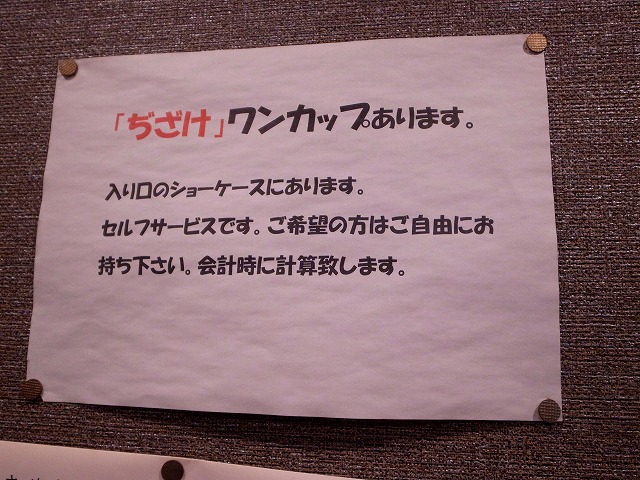 「ぢざけ」ワンカップあります。
入り口のショーケースにあります。
セルフサービスです。ご希望の方はご自由にお
持ち下さい。会計時に計算致します。